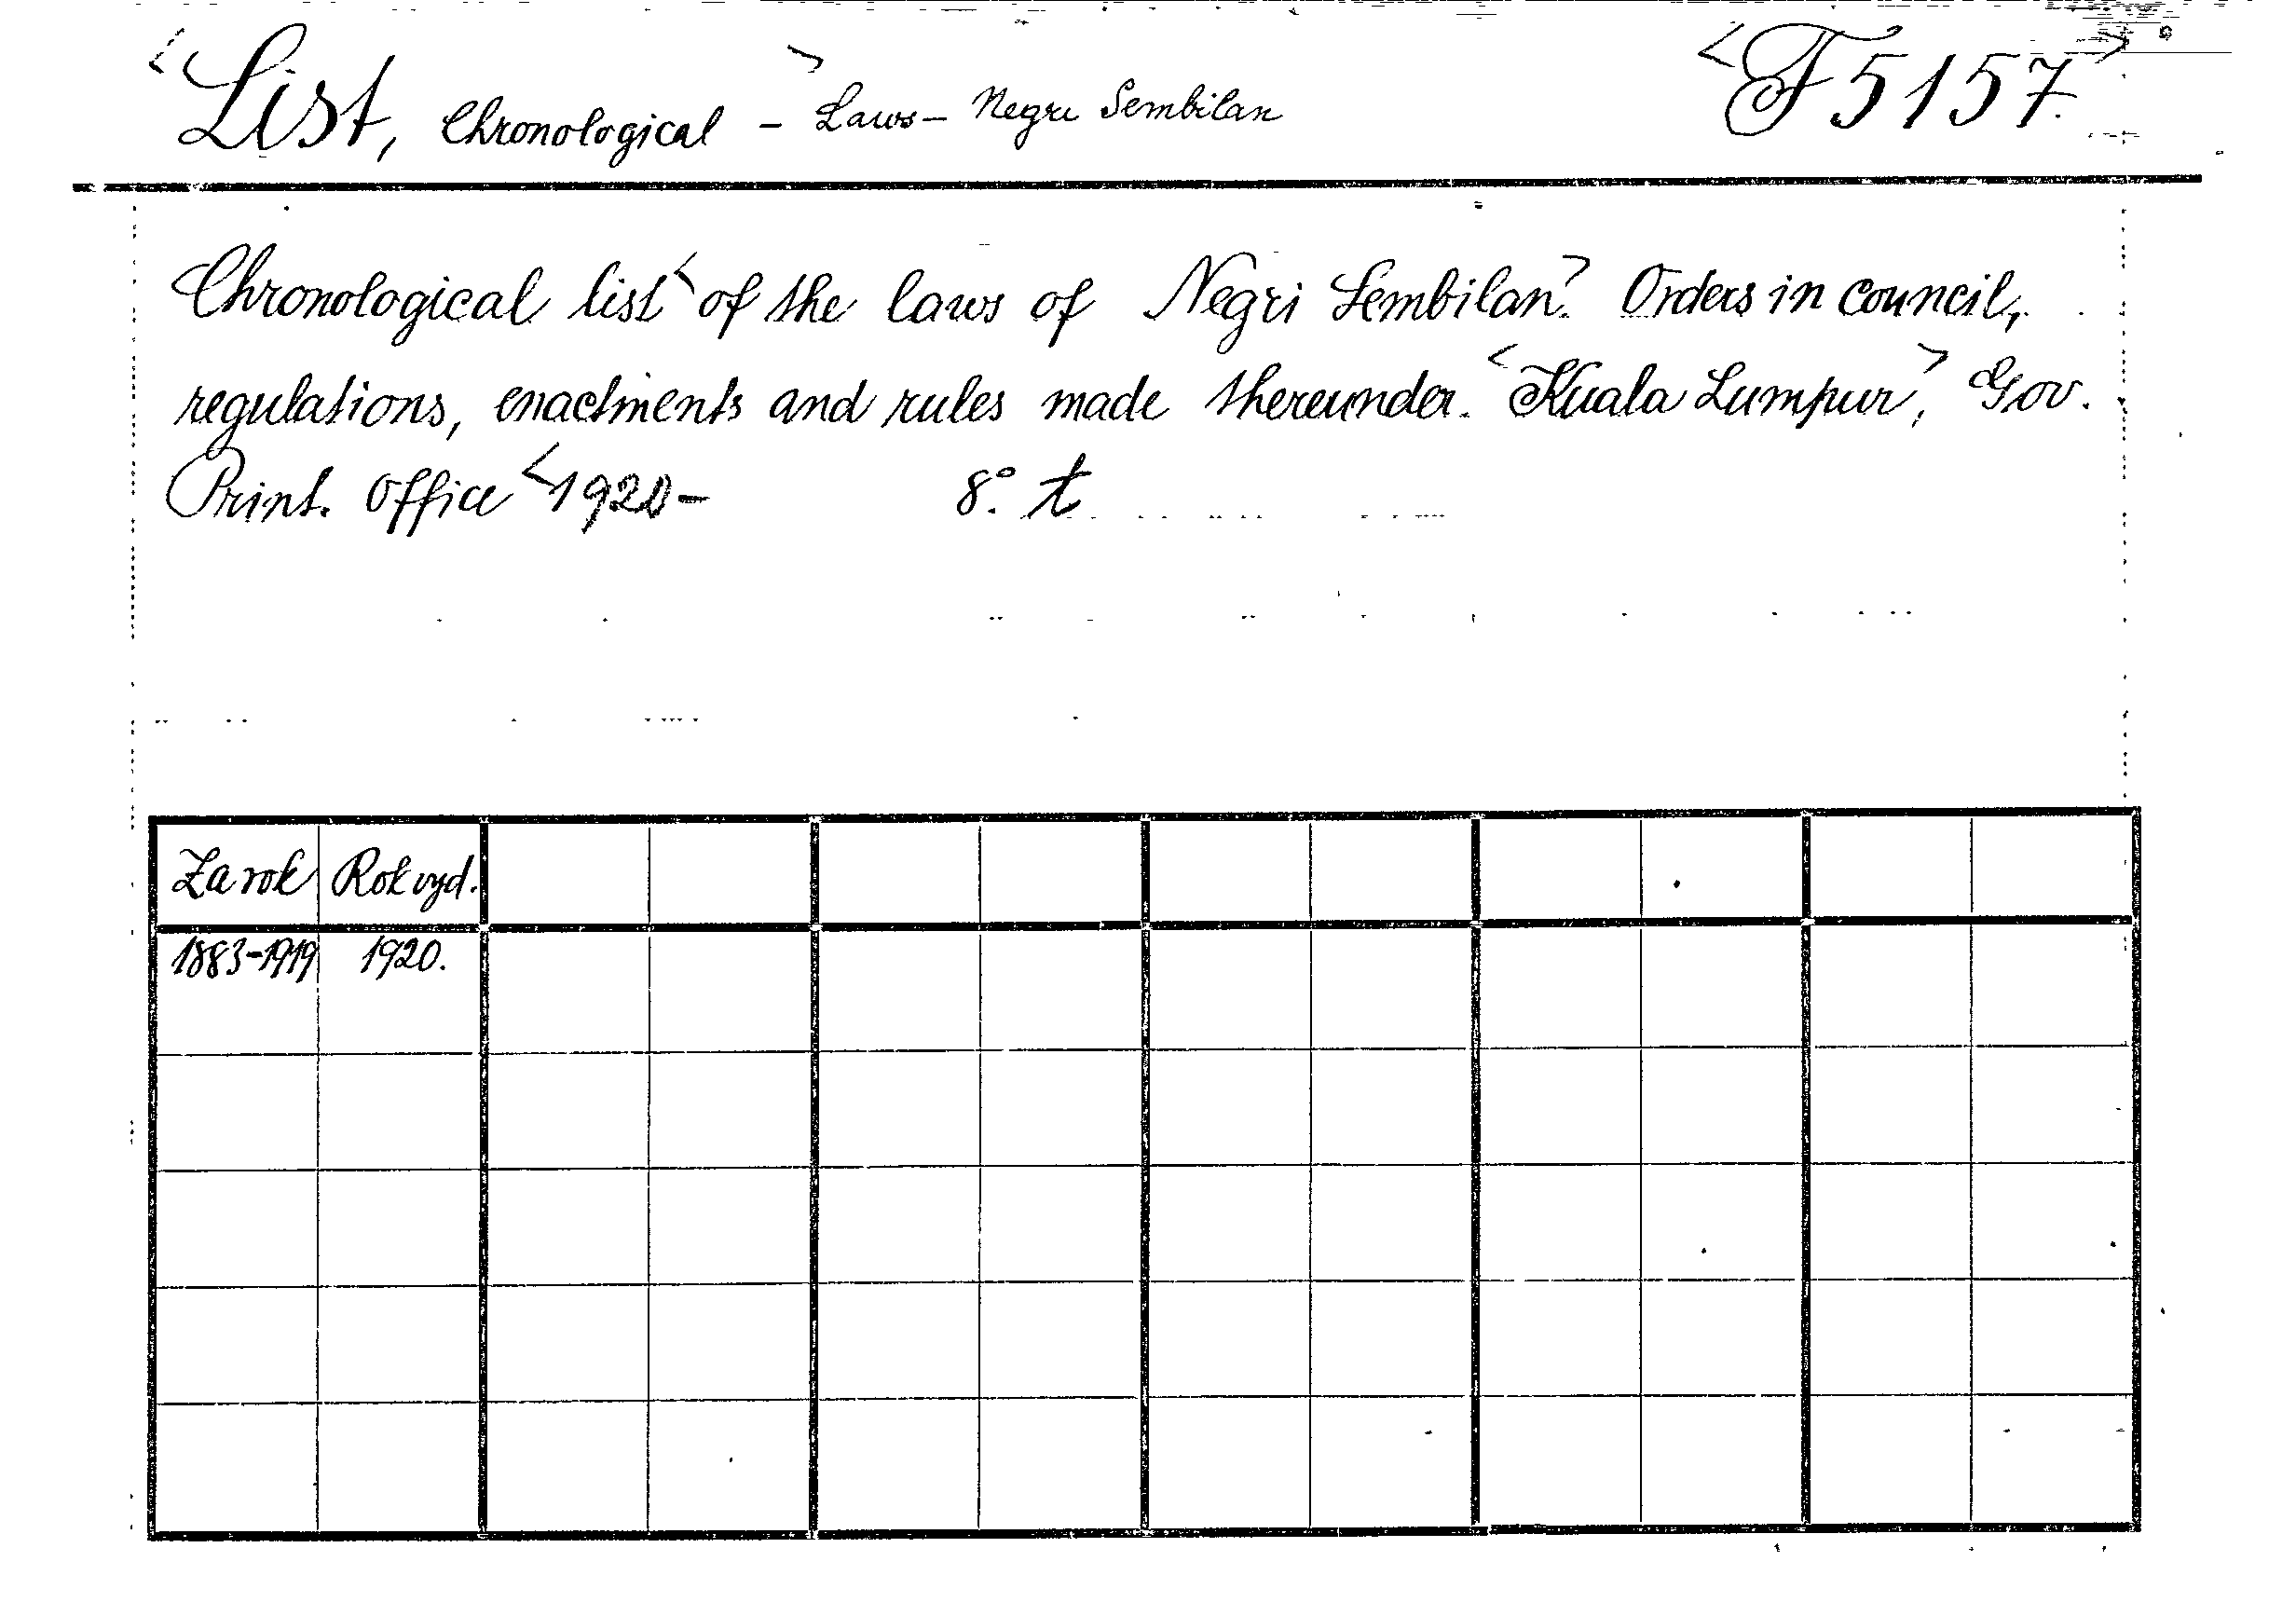 <List, Chronological> - Laws - Negri Sembilan <F 5157.>
Chronological list <of the laws of Negri Sembilan>. Orders in council,
regulations, enactments and rules made thereunder. <Kuala Lumpur>, Gov.
Print. Office <1920- 8°. t
Za rok Rok vyd.
1883-1919 1920.